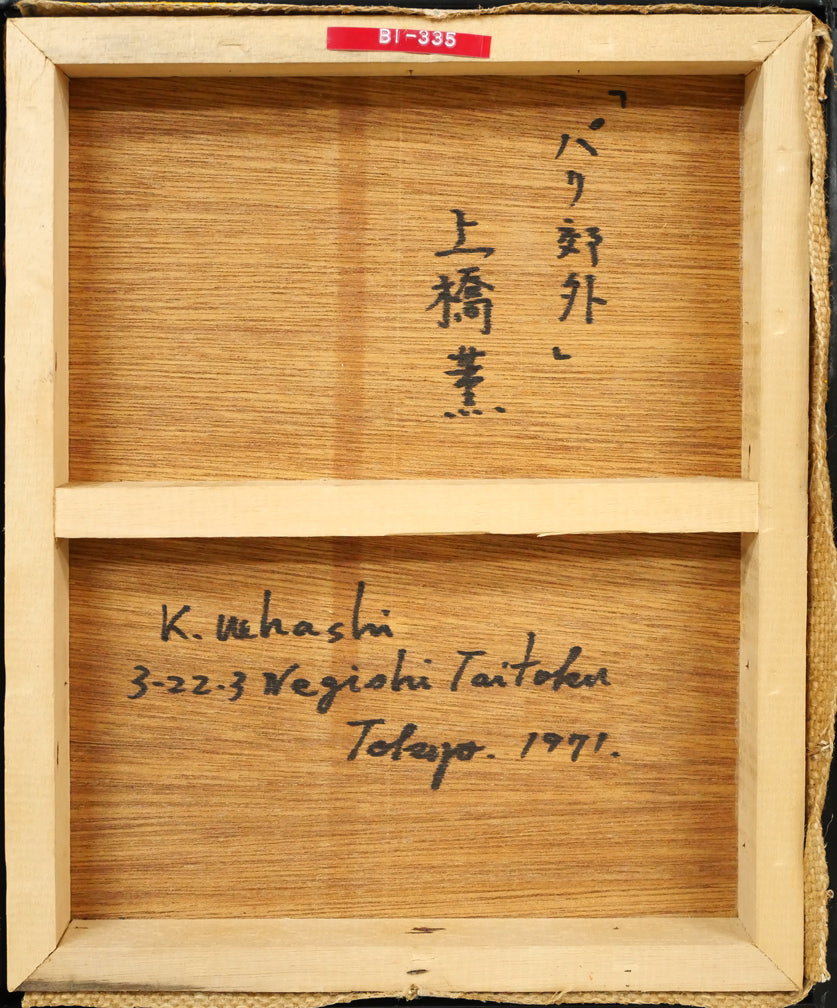 BI-335
「パリ郊外」
上橋薫
K. Uehashi
3-22-3 Negishi Taitoku
Tokyo. 1971.